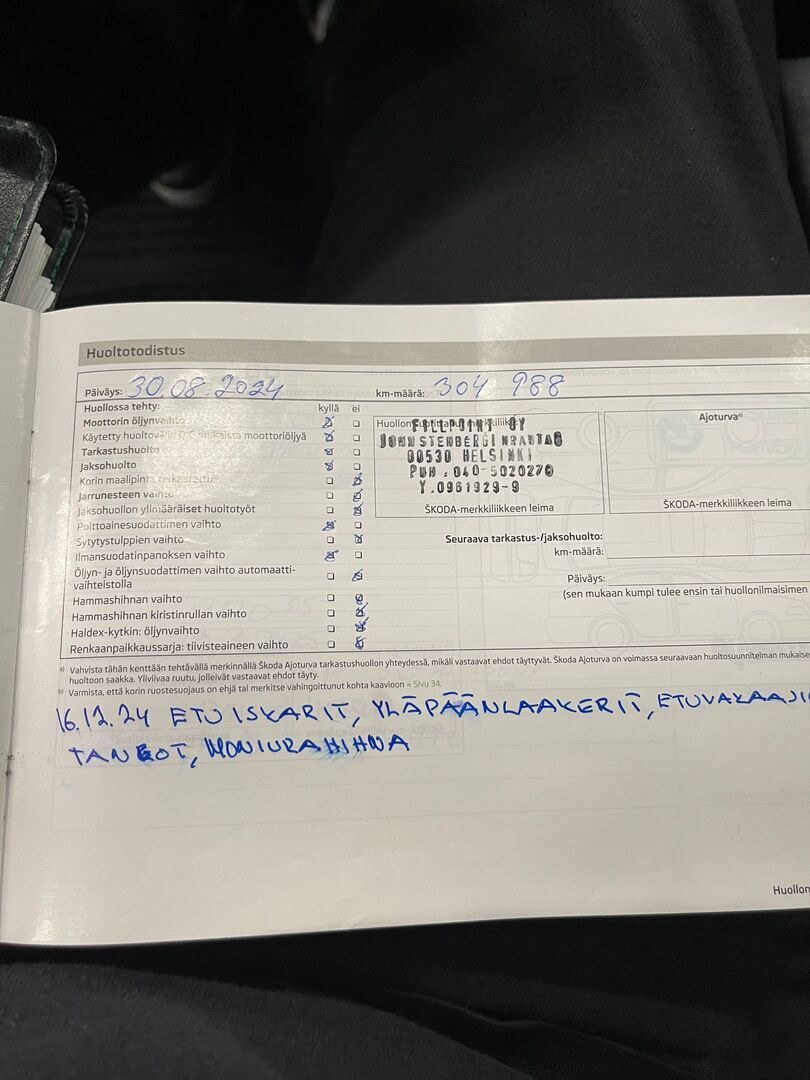 Huoltotodistus
Päiväys: 30.08.2024 km-määrä: 304 988
Huollossa tehty: kyllä ei
Moottorin öljynvaihto
Käytetty huoltovälin moottoriöljyä
Tarkastushuolto
Jaksohuolto
Korin maalipinta tarkastettu b)
Jarrunesteen vaihto
Jaksohuollon ylimääräiset huoltotyöt
Polttoainesuodattimen vaihto
Sytytystulppien vaihto
Ilmansuodatinpanoksen vaihto
Öljyn- ja öljynsuodattimen vaihto automaatti-
vaihteistolla
Hammashihnan vaihto
Hammashihnan kiristinrullan vaihto
Haldex-kytkin: öljynvaihto
Renkaanpaikkaussarja: tiivisteaineen vaihto
Huollon suorittanut merkkiliike
FILLPOINT OY
JOHN STENBERGINRANTA6
00530 HELSINKI
PUH. 040-5020270
Y.0981929-9
ŠKODA-merkkiliikkeen leima
Ajoturva a)
ŠKODA-merkkiliikkeen leima
Seuraava tarkastus-/jaksohuolto:
km-määrä:
Päiväys:
(sen mukaan kumpi tulee ensin tai huollonilmaisimen
a) Vahvista tähän kenttään tehtävällä merkinnällä Škoda Ajoturva tarkastushuollon yhteydessä, mikäli vastaavat ehdot täyttyvät. Škoda Ajoturva on voimassa seuraavaan huoltosuunnitelman mukaise
huoltoon saakka. Yliviivaa ruutu, jolleivät vastaavat ehdot täyty.
b) Varmista, että korin ruostesuojaus on ehjä tai merkitse vahingoittunut kohta kaavioon » Sivu 34.
16.12.24 ETU ISKARIT, YLÄPÄÄNLAAKERIT, ETUVAKAAJI
TANGOT, MONIURAHIHNA
Huollon